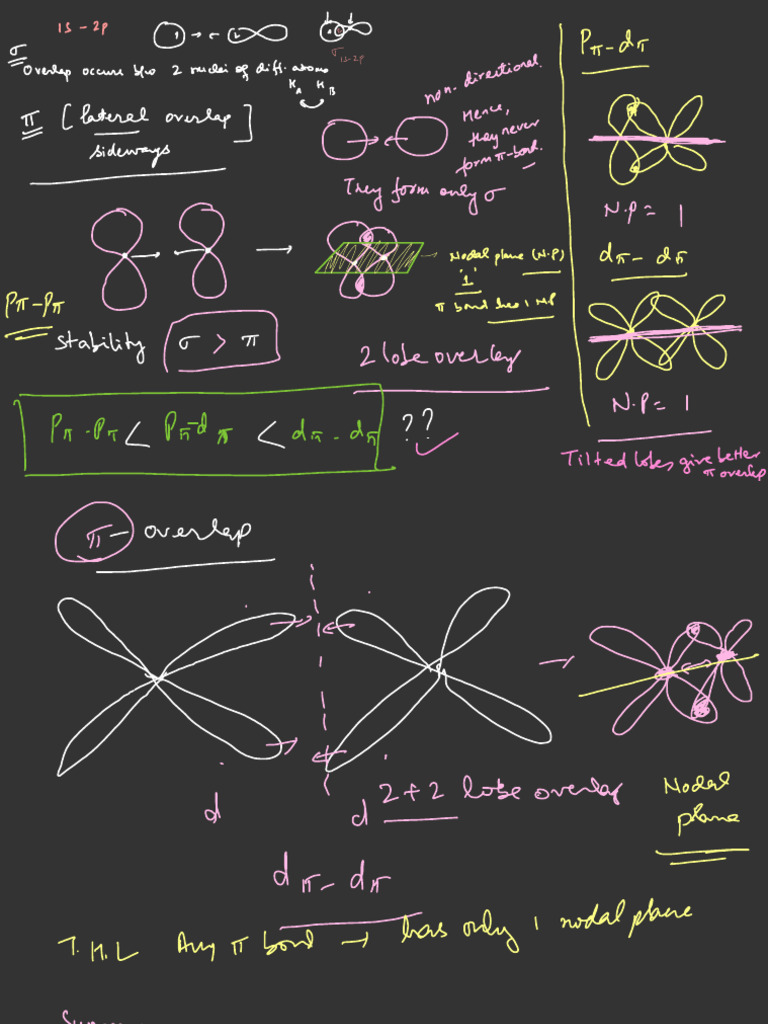 1s - 2p
1 2
σ1s-2p
σ
Overlap occurs b/w 2 nuclei of diff. atoms
HA HB
π [lateral overlap]
sideways
non-directional.
Hence,
they never
form π-bond.
They form only σ
Nodal plane (N.P)
'1'
π bond has 1 N.P
Pπ-Pπ
stability σ > π
2 lobe overlap
Pπ-Pπ < Pπ-dπ < dπ-dπ ??
Pπ-dπ
N.P = 1
dπ-dπ
N.P = 1
Tilted lobes give better
π overlap
π-overlap
d d
2+2 lobe overlap
Nodal
plane
dπ-dπ
T.H.L Any π bond → has only 1 nodal plane